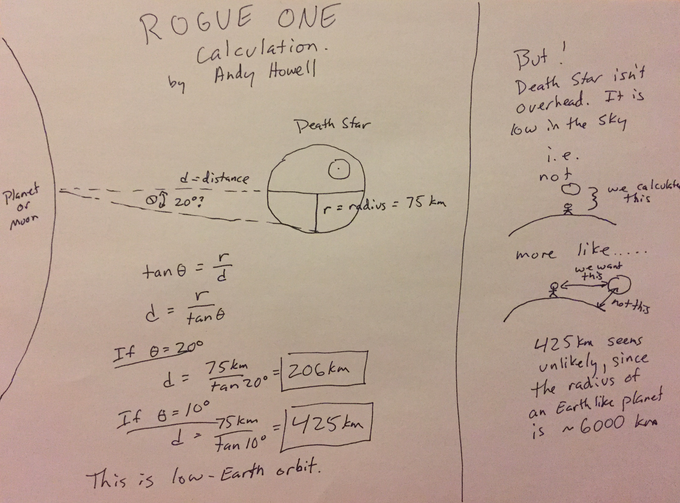 ROGUE ONE
Calculation.
by Andy Howell
Death Star
d = distance
θ 20°?
r = radius = 75 km
Planet
or
Moon
tan θ = r/d
d = r/tan θ
If θ = 20°
d = 75 km/tan 20° = 206 km
If θ = 10°
d = 75 km/tan 10° = 425 km
This is low-Earth orbit.
But!
Death Star isn't
overhead. It is
low in the sky
i.e.
not
we calculate
this
more like.....
we want
this
not this
425 km seems
unlikely, since
the radius of
an Earthlike planet
is ~6000 km